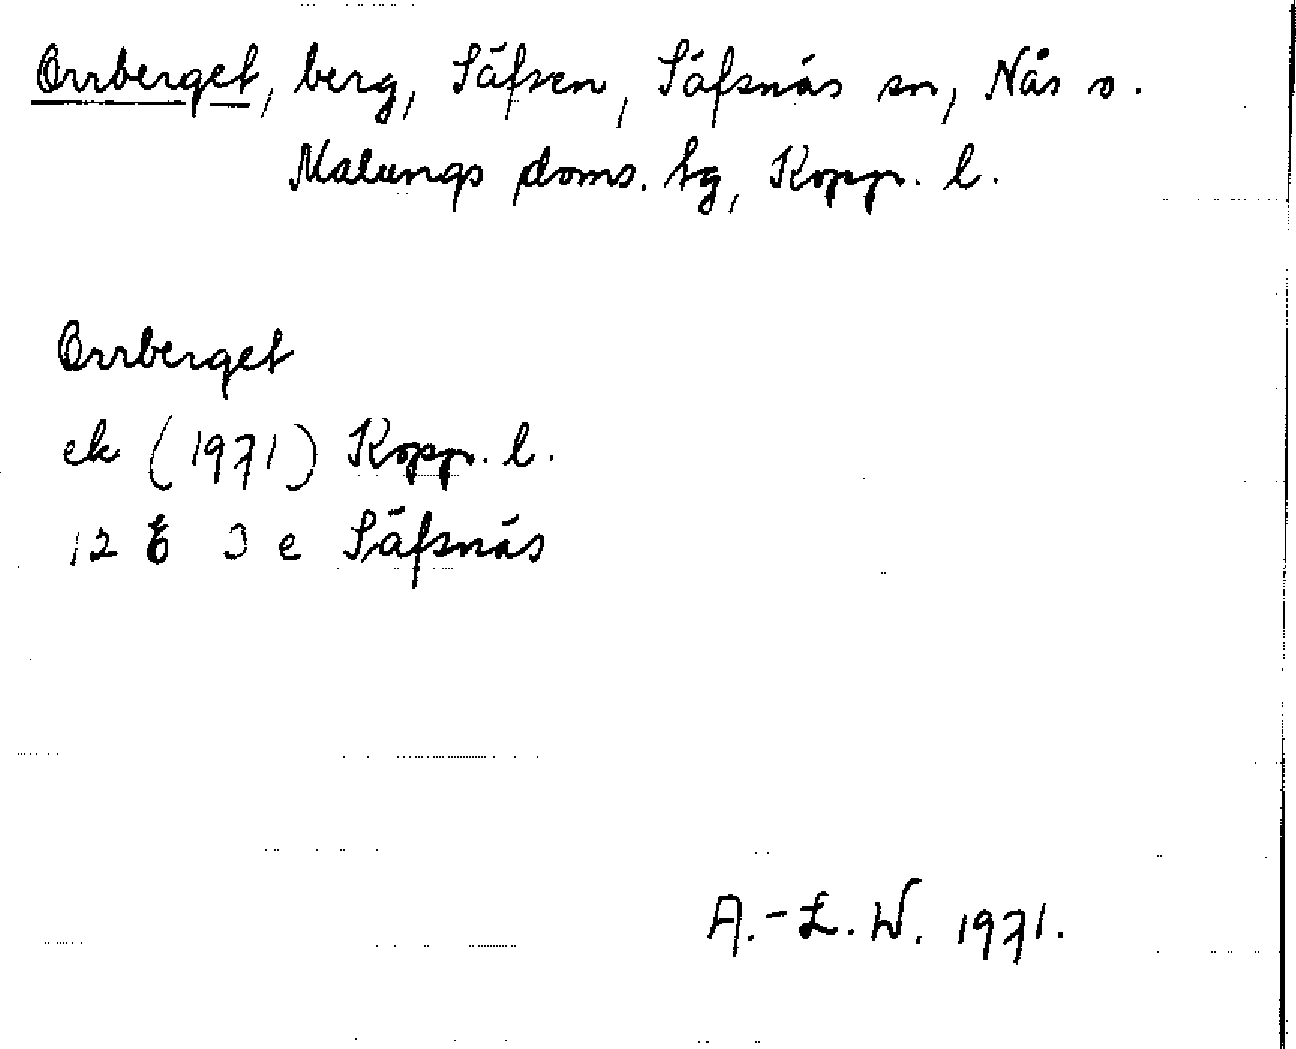 Orrberget, berg, Säfsen, Säfsnäs sn, Nås o.
Malungs doms. tg, Kopp. l.
Orrberget
ek (1971) Kopp. l.
12 E 3 e Säfsnäs
A.-L. W. 1971.